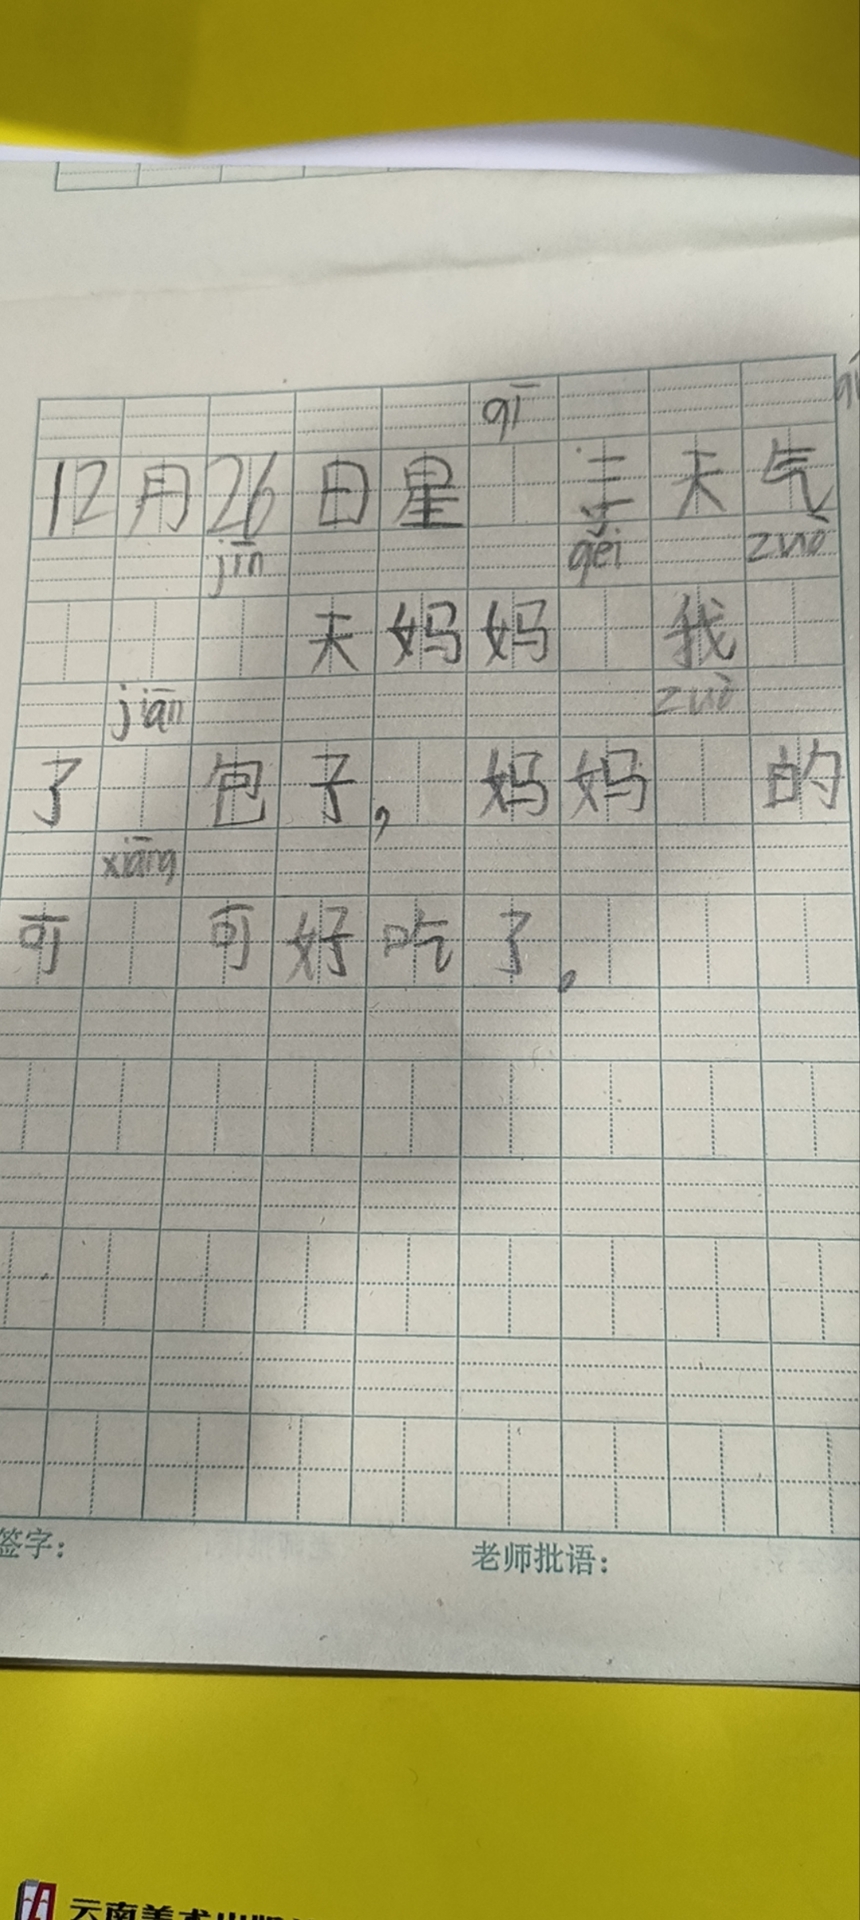 qī
12月26日星 三天气
jīn gěi zuò
天妈妈 我
jiān zuò
了 包子, 妈妈 的
xiāng
可 可好吃了。
签字：
老师批语：
云南美术出版